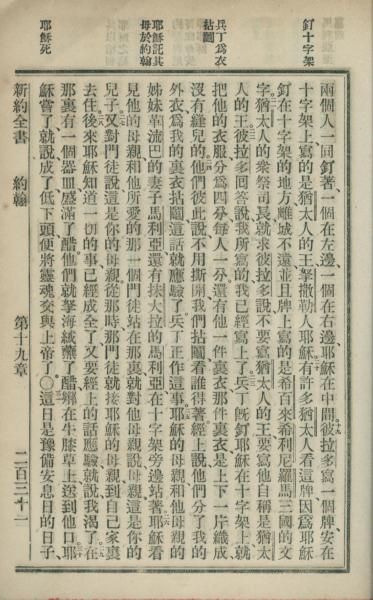 釘十字架
兵丁爲衣
拈鬮
耶穌託其
母於約翰
耶穌死
兩個人一同釘著、一個在左邊、一個在右邊、耶穌在中間彼拉多寫一個牌、安在
十字架上、寫的是猶太人的王拏撒勒人耶穌有許多猶太人看這牌因爲耶穌
釘在十字架的地方、離城不遠、並且牌上寫的是希百來希利尼羅馬三國的文
字猶太人的衆祭司長就求彼拉多說、不要寫猶太人的王、要寫他自稱是猶太
人的王彼拉多回答說、我所寫的我已經寫上了兵丁既釘耶穌在十字架上、就
把他的衣服分爲四分、每人一分還有他一件裏衣那件裏衣、是上下一片織成、
沒有縫兒的他們彼此說、不用撕開、我們拈鬮看誰得著經上說、他們分了我的
外衣、爲我的裏衣拈鬮、這話就應驗了兵丁正作這事耶穌的母親、和他母親的
姊妹革流巴的妻子馬利亞、還有抹大拉的馬利亞、在十字架旁邊站著耶穌看
見他的母親、和他所愛的那一個門徒站在那裏、就對他母親說、母親、這是你的
兒子又對門徒說、這是你的母親從那時那門徒就接耶穌的母親、到自己家裏
去住後來耶穌知道一切的事已經成全了、又要經上的話應驗就說、我渴了在
那裏有一個器皿盛滿了醋、他們就拏海絨蘸了醋、綁在牛膝草上、送到他口耶
穌嘗了、就說、成了、低下頭、便將靈魂交與上帝了○這日是豫備安息日的日子、
新約全書 約翰 第十九章 二百三十二